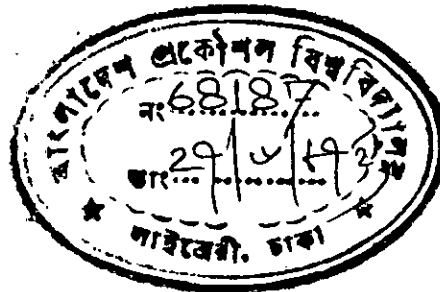 বাংলাদেশ প্রকৌশল বিশ্ববিদ্যালয়
নং 68187
তাং
★ লাইব্রেরী, ঢাকা ★